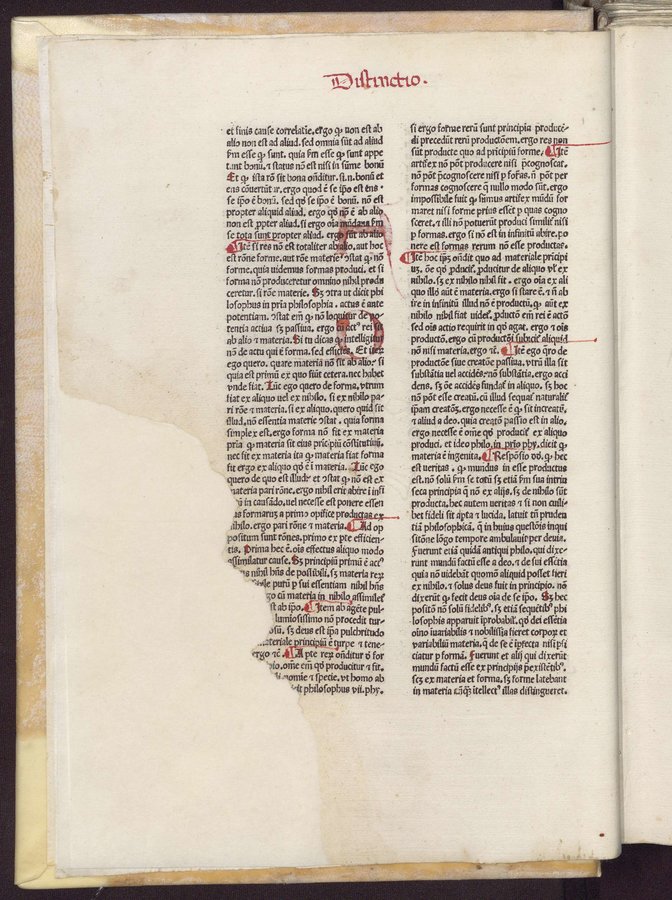 Distinctio.
et finis cause correlatiẽ. ergo qꝫ non est ab
alio non est ad aliud. sed omnia sũt ad aliud
ẽm esse qꝫ sunt. quia ẽm esse qꝫ sunt appe
tunt bonũ. ⁊ status nõ est nisi in sũme bonũ
Et qꝫ ista rõ sit bona oñditur. s. n. bonũ et
ens cõuertũtur. ergo quod ẽ se ip̃o est ens
se ip̃o ẽ bonũ. sed qð se ip̃o ẽ bonũ. nõ est
propter aliquid aliud. ergo qð nõ ẽ ab alio
non est ꝓpter aliud. sed oia mũdana ẽm
se tota sunt propter aliud. ergo sũt ab alio
¶ Itẽ si res nõ est totaliter ab alio. aut hoc
est rõne forme. aut rõne materie. ↄstat qꝫ nõ
forme. quia uidemus formas produci. et si
forma nõ produceretur omnino nihil produ
ceretur. si rõne materie. Sꝫ ↄtra ut dicit phi
losophus in pria philosophia. actus ẽ ante
potentiam. ↄstat em̃ qꝫ nõ loquitur de po
tentia actiua sꝫ passiua. ergo cũ actus rei sit
ab alio ⁊ materia. Si tu dicas qꝫ intelligitur
nõ de actu qui ẽ forma. sed efficiẽs. Et iter
ego quero. quare materia nõ sit ab alio. si
quia est primũ ex quo fiũt cetera. nec habet
vnde fiat. Tũc ego quero de forma. vtrum
fiat ex aliquo uel ex nihilo. si ex nihilo pa
ri rõe ⁊ materia. si ex aliquo. quero quid sit
illud. nõ essentia materie ↄstat. quia forma
simplex est. ergo forma nõ fit ex materia
pria qꝫ materia sit eius pricipiũ cõstitutiuũ.
nec fit ex materia ita qꝫ materia fiat forma
fit ergo ex aliquo qð ẽ ĩ materia. Tũc ego
quero de quo est illud? et ↄstat qꝫ nõ est ex
materia pari rõne. ergo nihil erit abire ĩ ĩfi
ũ in causãdo. uel necesse est ponere essen
us formarũ a primo opifice productas ex
nihilo. ergo pari rõne ⁊ materia. ¶ Ad op
positum sunt rões. primo ex pte efficien
tis. Prima hec ẽ. ois effectus aliquo modo
assimilatur cause. Sꝫ principiũ primũ ẽ actꝰ
nihil hñs de possibili. sꝫ materia rerũ
ẽ pure possibile purũ p̃ sui essentiam nihil hñs
go cũ materia in nihilo assimiler
st ab ip̃o. ¶ Item ab agẽte pul
luminosissimo nõ procedit tur
osũ. sꝫ deus est ip̃a pulchritudo
ateriale principiũ ẽ turpe ⁊ tene
ergo ⁊c̃. ¶ A pte rerũ oñditur qð for
bio. oĩne em̃ qð producitur ⁊ fit.
it nomie ⁊ specie. vt homo ab
it philosophus vii. phy.
si ergo forme rerũ sunt principia producẽ
di precedũt rerũ productionem. ergo res non
sũt producte quo ad pricipiũ forme. ¶ Itẽ
artifex nõ põt producere nisi p̃cognoscat.
nõ põt p̃cognoscere nisi p̃ formas. ñ põt per
formas cognoscere q̃ nullo modo sũt. ergo
impossibile fuit qꝫ sũmus artifex mũdũ for
maret nisi forme prius essẽt p̃ quas cogno
sceret. ⁊ illi nõ potuerũt produci similiꝰ nisi
p̃ formas. ergo si nõ est in infinitũ abire. po
nere est formas rerum nõ esse productas.
¶ Itẽ hoc ip̃ʒ oñdit quo ad materiale pricipi
uʒ. õe qð ꝓducit̃. ꝓducitur de aliquo vel ex
nihilo. sꝫ ex nihilo nihil fit. ergo oia ex ali
quo illð aũt ẽ materia. ergo si stare ẽ. ⁊ ñ ab
ire in infinitũ illud nõ ẽ productũ. qꝫ aũt ex
nihilo nihil fiat uidet̃. ꝓductõ em̃ rei ẽ actõ
sed ois actio requirit in qð agat. ergo ⁊ ois
productõ. ergo cũ productõi subicit̃ aliquid
nõ nisi materia. ergo ⁊c̃. ¶ Itẽ ego q̃ro de
productiõe siue creatiõe passiua. vtrũ illa sit
substãtia uel accidẽs. nõ substãtia. ergo acci
dens. sꝫ õe accidẽs fundat̃ in aliquo. sꝫ hoc
nõ põt esse creatũ. cũ illud sequat̃ naturalit̃
ip̃am creatõʒ. ergo necesse ẽ qꝫ sit increatũ.
⁊ aliud a deo. quia creatõ passio est in alio.
ergo necesse ẽ om̃e qð producit̃ ex aliquo
produci. et ideo philo. in prio phy. dicit qꝫ
materia ẽ ingenita. ¶ Respõsio vð. qꝫ hec
est veritas. qꝫ mundus in esse productus
est. nõ solũ ẽm se totũ sꝫ etiã ẽm sua intrin
seca principia q̃ nõ ex alijs. sꝫ de nihilo sũt
producta. hec autem ueritas ⁊ si non cuili
bet fideli sit apta ⁊ lucida. latuit tñ pruden
tiã philosophicã. q̃ in huius questiõis inqui
sitiõne lõgo tempore ambulauit per deuia.
Fuerunt etiã quidã antiqui philo. qui dixe
runt mundũ factũ esse a deo. ⁊ de sui essẽtia
quia nõ uidebãt quomõ aliquid posset fieri
ex nihilo. ⁊ solus deus fuit in principio. nõ
dixerũt qꝫ fecit deus oia de se ip̃o. Sꝫ hec
positõ nõ solũ fidelibꝰ. sꝫ etiã sequẽtibꝰ phi
losophis apparuit ĩprobabil̃. qð dei essẽtia
oĩno iuariabilis ⁊ nobilissĩa fieret corpoꝝ et
variabiliũ materia. q̃ de se ẽ ĩpfecta nisi pfi
ciatur p̃ formã. Fuerunt et alij qui dixerũt
mundũ factũ esse ex principijs p̃existẽtibꝰ.
scʒ ex materia et forma. sꝫ forme latebant
in materia donec itellectꝰ illas distingueret.